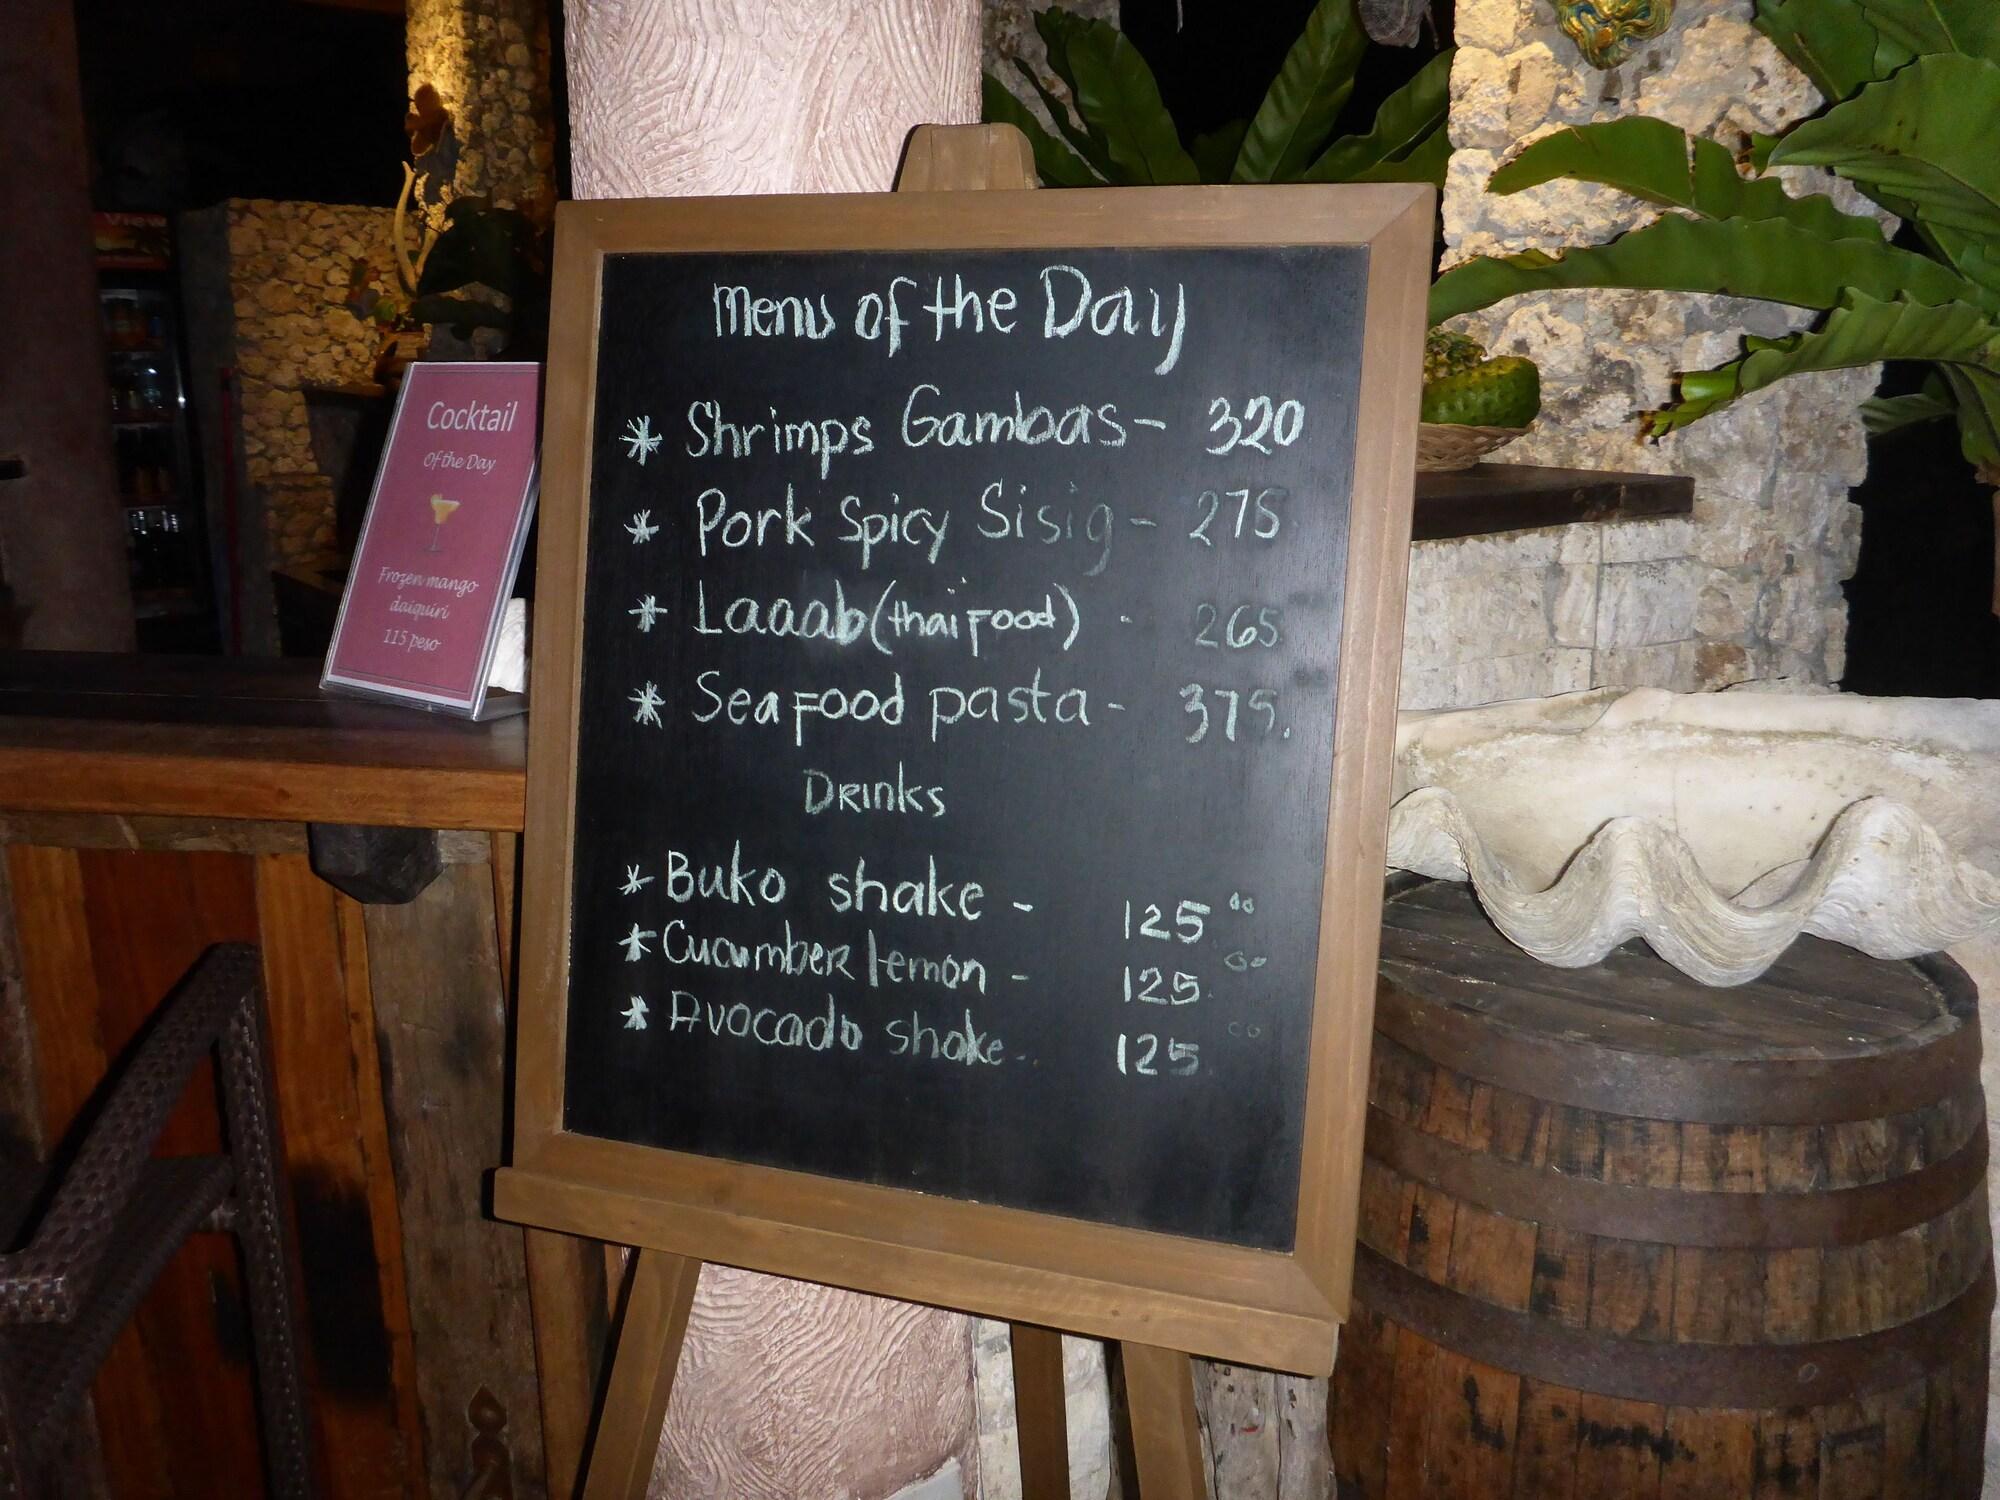 View
Cocktail
Of the Day
Frozen mango
daiquiri
115 peso
Menu of the Day
* Shrimps Gambas - 320
* Pork Spicy Sisig - 275.
* Laaab (thai Food) - 265
* Sea Food pasta - 375.
Drinks
* Buko shake - 125 00
* Cucumber lemon - 125. 00
* Avocado shake - 125. 00